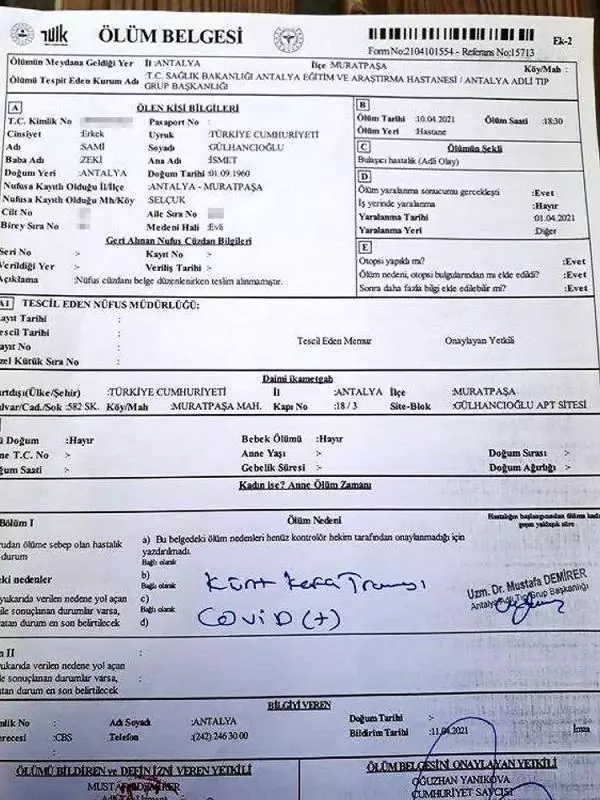 TÜİK
ÖLÜM BELGESİ
Form No:2104101554 - Referans No:15713
Ek-2
Ölümün Meydana Geldiği Yer İl :ANTALYA İlçe :MURATPAŞA Köy/Mah :
Ölümü Tespit Eden Kurum Adı :T.C. SAĞLIK BAKANLIĞI ANTALYA EĞİTİM VE ARAŞTIRMA HASTANESİ / ANTALYA ADLİ TIP GRUP BAŞKANLIĞI
A ÖLEN KİŞİ BİLGİLERİ
T.C. Kimlik No Pasaport No :
Cinsiyet :Erkek Uyruk :TÜRKİYE CUMHURİYETİ
Adı :SAMİ Soyadı :GÜLHANCIOĞLU
Baba Adı :ZEKİ Ana Adı :İSMET
Doğum Yeri :ANTALYA Doğum Tarihi :01.09.1960
Nufusa Kayıtlı Olduğu İl/İlçe :ANTALYA - MURATPAŞA
Nufusa Kayıtlı Olduğu Mh/Köy :SELÇUK
Cilt No Aile Sıra No
Birey Sıra No Medeni Hali :Evli
Geri Alınan Nufus Cüzdan Bilgileri
Seri No :- Kayıt No :-
Verildiği Yer :- Veriliş Tarihi :-
Açıklama :Nüfus cüzdanı belge düzenlenirken teslim alınmamıştır.
B
Ölüm Tarihi :10.04.2021 Ölüm Saati :18:30
Ölüm Yeri :Hastane
C Ölümün Şekli
Bulaşıcı hastalık (Adli Olay)
D
Ölüm yaralanma sonucumu gerçekleşti :Evet
İş yerinde yaralanma :Hayır
Yaralanma Tarihi :01.04.2021
Yaralanma Yeri :Diğer
E
Otopsi yapıldı mı? :Evet
Ölüm nedeni, otopsi bulgularından mı elde edildi? :Evet
Sonra daha fazla bilgi ekle edilebilir mi? :Evet
A1 TESCİL EDEN NÜFUS MÜDÜRLÜĞÜ:
ayıt Tarihi :
escil Tarihi :
ayıt No :
zel Kütük Sıra No :
Tescil Eden Memur Onaylayan Yetkili
Daimi ikametgah
rtdışı(Ülke/Şehir) :TÜRKİYE CUMHURİYETİ İl :ANTALYA İlçe :MURATPAŞA
lvar/Cad./Sok :582 SK. Köy/Mah :MURATPAŞA MAH. Kapı No :18 / 3 Site-Blok :GÜLHANCIOĞLU APT SİTESİ
ü Doğum :Hayır Bebek Ölümü :Hayır
ne T.C. No :- Anne Yaşı :- Doğum Sırası :-
ğum Saati :- Gebelik Süresi :- Doğum Ağırlığı :-
Kadın ise? Anne Ölüm Zamanı
Bölüm I Ölüm Nedeni Hastalığın başlangıcından ölüme kadar geçen yaklaşık süre
rudan ölüme sebep olan hastalık
durum
a) Bu belgedeki ölüm nedenleri henüz kontrolör hekim tarafından onaylanmadığı için yazdırılmadı.
Bağlı olarak
eki nedenler
b)
Bağlı olarak
Künt kafa Travması
yukarıda verilen nedene yol açan
ile sonuçlanan durumlar varsa,
atan durum en son belirtilecek
c)
Bağlı olarak
d)
COVİD (+)
Uzm. Dr. Mustafa DEMİRER
Antalya Adli Tıp Grup Başkanlığı
m II
yukarıda verilen nedene yol açan
ile sonuçlanan durumlar varsa,
atan durum en son belirtilecek
BİLGİYİ VEREN
imlik No : Adı Soyadı :ANTALYA Doğum Tarihi :-
erecesi :CBS Telefon :(242) 246 30 00 Bildirim Tarihi :11.04.2021 İmza
ÖLÜMÜ BİLDİREN ve DEFİN İZNİ VEREN YETKİLİ
MUSTAFA DEMİRER
ÖLÜM BELGESİNİ ONAYLAYAN YETKİLİ
OĞUZHAN YANIKOVA
CUMHURİYET SAVCISI